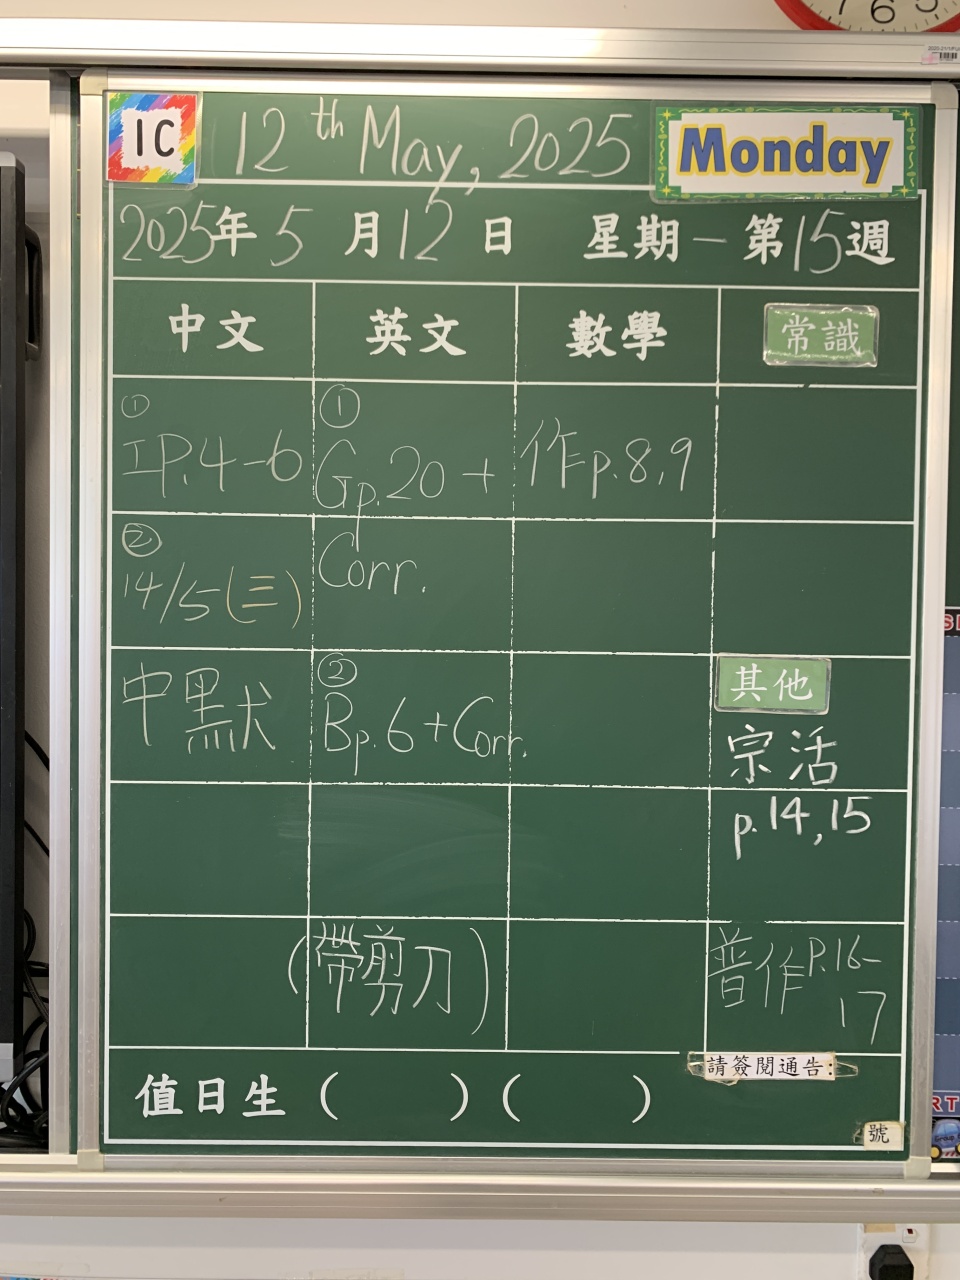 7 6 5
1C
12th May, 2025
Monday
2025年5月12日 星期一 第15週
中文 英文 數學 常識
①
IP.4-6
②
14/5(三)
中默
①
Gp.20 +
Corr.
②
Bp.6+Corr.
(帶剪刀)
作p.8,9
其他
宗活
p.14,15
普作P.16-
17
請簽閱通告:
值日生 ( ) ( )
號
RT